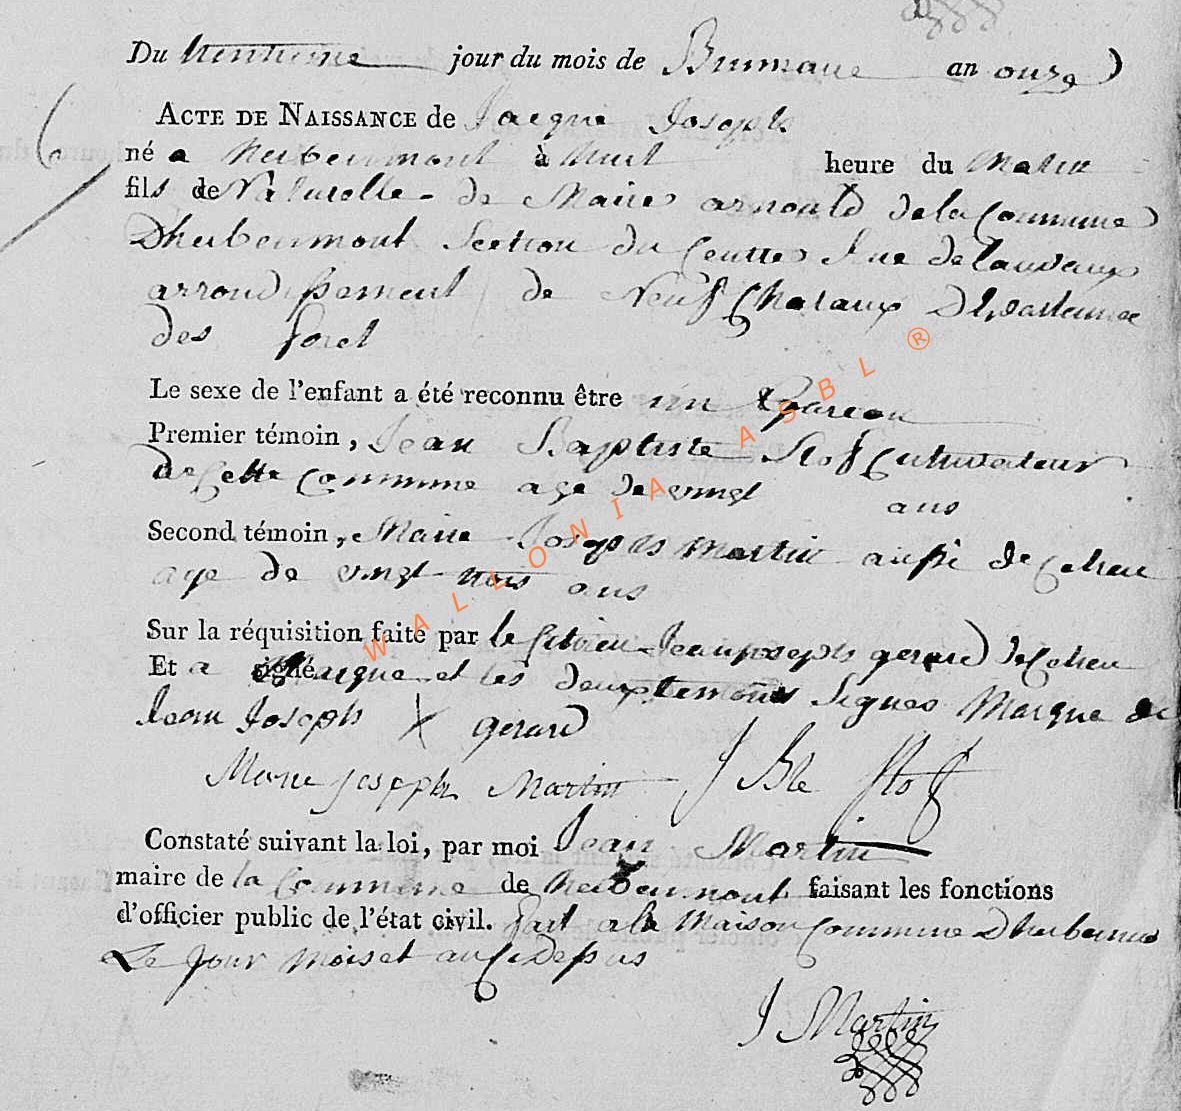 Du trentieme jour du mois de Brumaire an onze
ACTE DE NAISSANCE de Jacque Joseph
né a herbeumont à huit heure du Matin
fils de Naturelle de Marie arnould de la Commune
Dherbeumont Section du Centre Rue de
arrondissement de Neufchataux Departement
des foret
Le sexe de l'enfant a été reconnu être un Garcon
Premier témoin, Jean Baptiste Stof Cultivateur
de Cette Commune age de vingt ans
Second témoin, Marie Joseph Martin aussi de Celieu
age de vingt trois ans
Sur la réquisition faite par le Citoien Jean joseph gerard de Celieu
Et a signé Marque et les deux temoins Signes Marque de
Jean Joseph X gerard
Marie Joseph Martin J Bte Stof
Constaté suivant la loi, par moi Jean Martin
maire de la Commune de herbeumont faisant les fonctions
d'officier public de l'état civil. fait a la Maison Commune Dherbeumo
Le Jour mois et an Cidessus
J Martin
WALLONIA ASBL ®